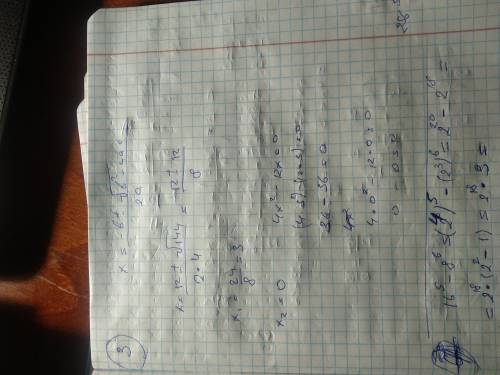 3
x = -b ± √b² - 4ac / 2a
x = 12 ± √144 / 2·4 = 12 ± 12 / 8
x₁ = 24/8 = 3
x₂ = 0
4x² - 12x = 0
(4·3²) - (12·3) = 0
36 - 36 = 0
4·0² - 12·0 = 0
0 - 0 = 0
16⁵ - 8⁶ = (2⁴)⁵ - (2³)⁶ = 2²⁰ - 2¹⁸ =
= 2¹⁸·(2² - 1) = 2¹⁸·3 =